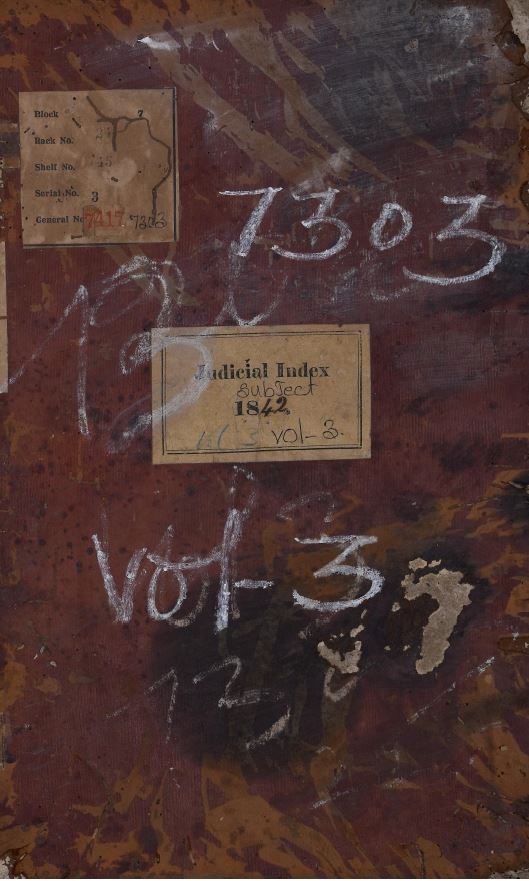 Block 7
Rack No.
Shelf No.
Serial No. 3
General No 7417 7303
7303
Judicial Index
SubJect
1842
Vol-3.
Vol-3